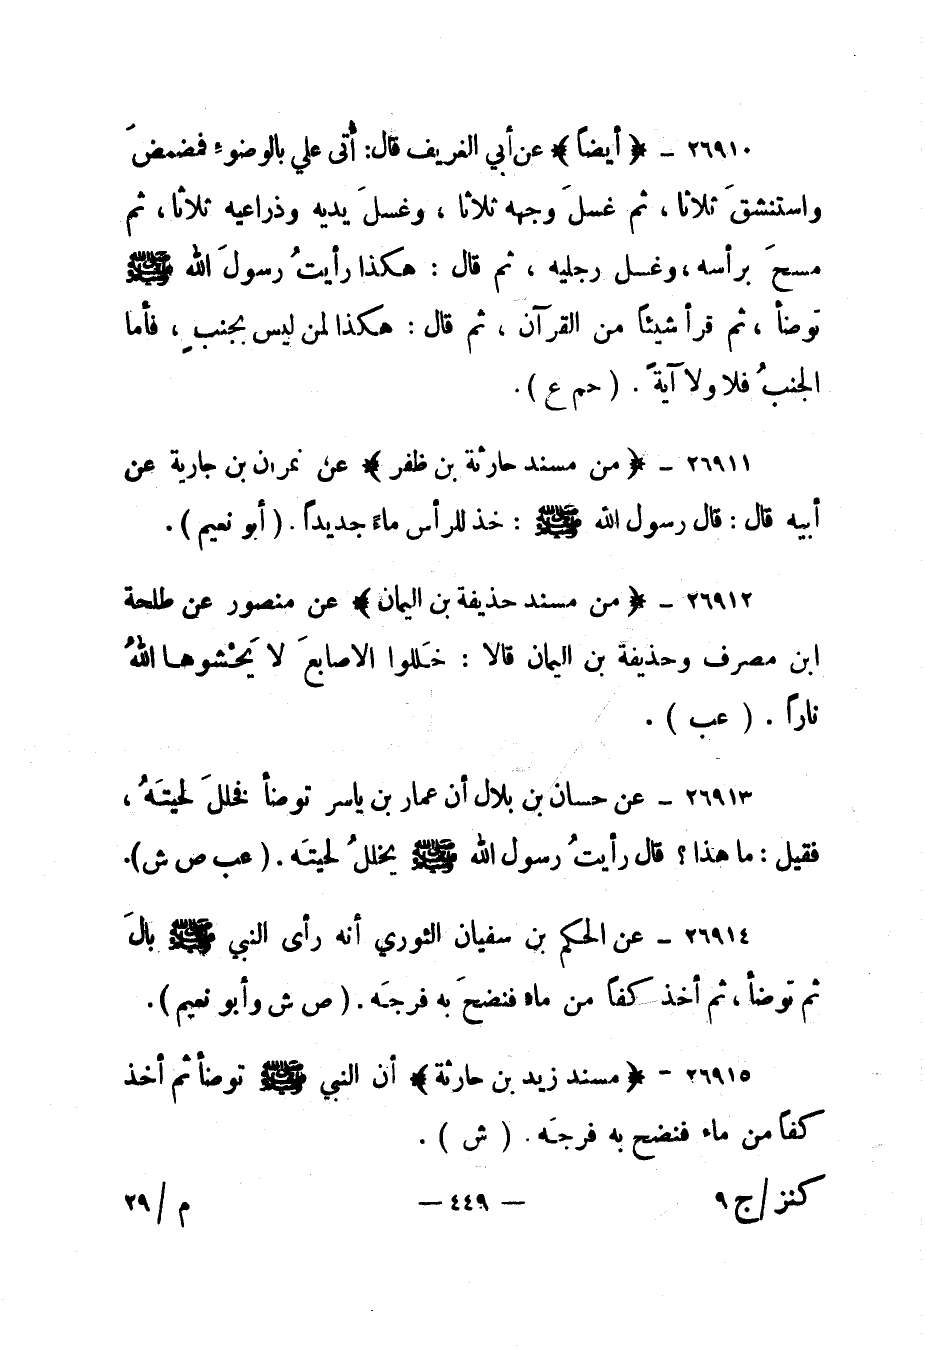 ٢٦٩١٠ ـ ﴿ أيضاً ﴾ عن أبي الغريف قال: أُتى علي بالوضوءِ فمضمضَ
واستنشقَ ثلاثا ، ثم غسلَ وجهه ثلاثا ، وغسلَ يديه وذراعيه ثلاثا ، ثم
مسحَ برأسه ، وغسل رجليه ، ثم قال : هكذا رأيتُ رسولَ الله ﷺ
توضأ ، ثم قرأ شيئاً من القرآن ، ثم قال : هكذا لمن ليس بجنبٍ ، فأما
الجنبُ فلا ولا آيةً . ( حم ع ) .
٢٦٩١١ ـ ﴿ من مسند حارثة بن ظفر ﴾ عن نمران بن جارية عن
أبيه قال : قال رسول الله ﷺ : خذ للرأس ماءً جديداً . ( أبو نعيم ) .
٢٦٩١٢ ـ ﴿ من مسند حذيفة بن اليمان ﴾ عن منصور عن طلحة
ابن مصرف وحذيفة بن اليمان قالا : خَللوا الاصابعَ لا يَحْشوها اللهُ
ناراً . ( عب ) .
٢٦٩١٣ ـ عن حسان بن بلال أن عمار بن ياسر توضأ فخللَ لحيتَهُ ،
فقيل : ما هذا ؟ قال رأيتُ رسول الله ﷺ يخللُ لحيتَه . ( عب ص ش ) .
٢٦٩١٤ ـ عن الحكم بن سفيان الثوري أنه رأى النبي ﷺ بالَ
ثم توضأ ، ثم أخذ كفاً من ماء فنضحَ به فرجَه . ( ص ش وأبو نعيم ) .
٢٦٩١٥ ـ ﴿ مسند زيد بن حارثة ﴾ أن النبي ﷺ توضأ ثم أخذ
كفاً من ماء فنضح به فرجَه . ( ش ) .
كنز / ج ٩ — ٤٤٩ — م / ٢٩